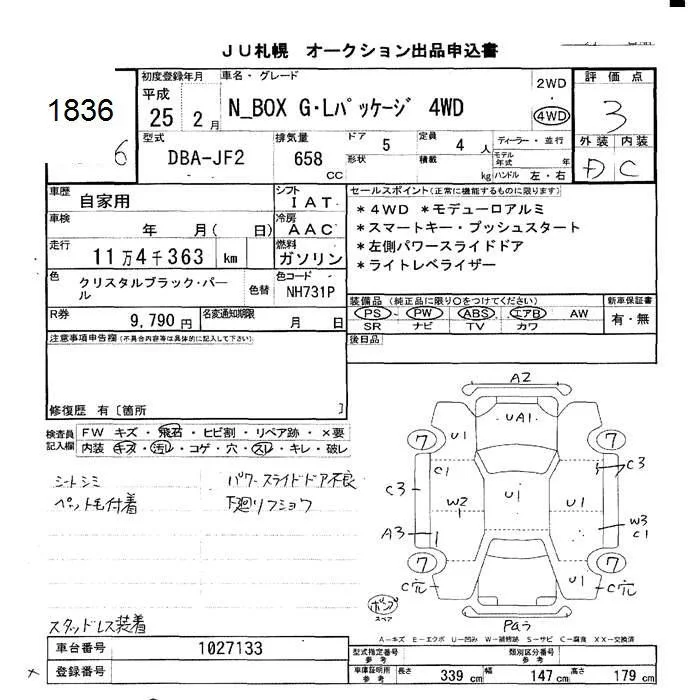 JU札幌 オークション出品申込書
1836
6
初度登録年月
平成
25 2月
車名・グレード
N_BOX G・Lパッケージ 4WD
2WD
4WD
評価点
3
外装 内装
D C
型式
DBA-JF2
排気量
658
CC
ドア 5
形状
定員 4 人
積載 kg
ディーラー・並行
モデル年式 年
ハンドル 左・右
車歴
自家用
シフト
IAT
車検
年 月( 日)
冷房
AAC
走行
11万4千363 km
燃料
ガソリン
セールスポイント(正常に機能するものに限ります)
*4WD *モデューロアルミ
*スマートキー・プッシュスタート
*左側パワースライドドア
*ライトレベライザー
色
クリスタルブラック・パール
色替
色コード
NH731P
R券
9,790円
名変通知期限
月 日
装備品(純正品に限り○をつけてください)
PS PW ABS エアB AW
SR ナビ TV カワ
新車保証書
有・無
注意事項申告欄(不具合内容等は具体的に記入して下さい)
後日品
修復歴 有〔箇所 〕
検査員記入欄
FW キズ・飛石・ヒビ割・リペア跡・×要
内装 キズ・汚レ・コゲ・穴・スレ・キレ・破レ
シートシミ
ペット毛付着
パワースライドドア不良
下廻リフショウ
スタッドレス装着
A2
UA1
U1
7
7
C1
C3
C3
W2
1
U1
U1
A3
W3
C1
7
7
C穴
U1
C穴
ポンプ
スペア
A−キズ E−エクボ U−凹み W−補修跡 S−サビ C−腐食 XX−交換済
車台番号
1027133
登録番号
×
型式指定番号
参考
類別区分番号
参考
車庫証明用
参考
長さ 339 cm 幅 147 cm 高さ 179 cm